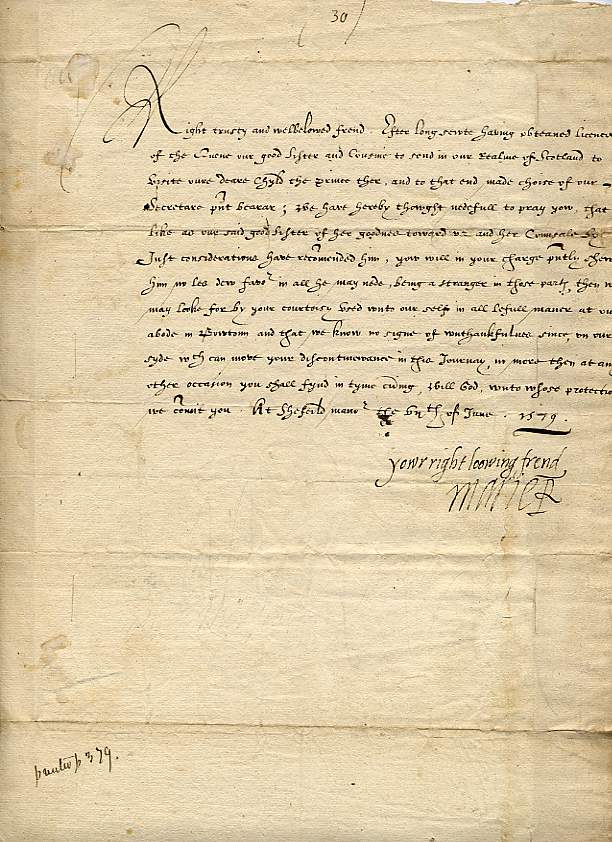 30
Right trusty and welbelowed frend. After long sewte having obteaned licence
of the Quene our good Sister and Cousine to send in our Realme of Scotland to
visite oure deare Chyld the prince ther, and to that end made choice of our
Secretare pnt bearar; We have hereby thought nedefull to pray yow, that
like as our said good Sister of her goodnes toward us and her Counsale
Just considerations have recomended him, yow will in your charge pntly shew
him no les dew favor in all he may nede, being a stranger in those parts, then
may looke for by your courtoisy Used unto our self in all lefull maner at
abode in Bowtoun and that we know no signe of unthankfulnes since, on our
syde wch can move your discontinewance in this Journay, in more then at
other occasion you shall fynd in tyme cuing, Will God, unto whose protectio
we comit you. At Shefeild manor the of June. 1579.
yowr right loowing frend
Marie R
p 379.